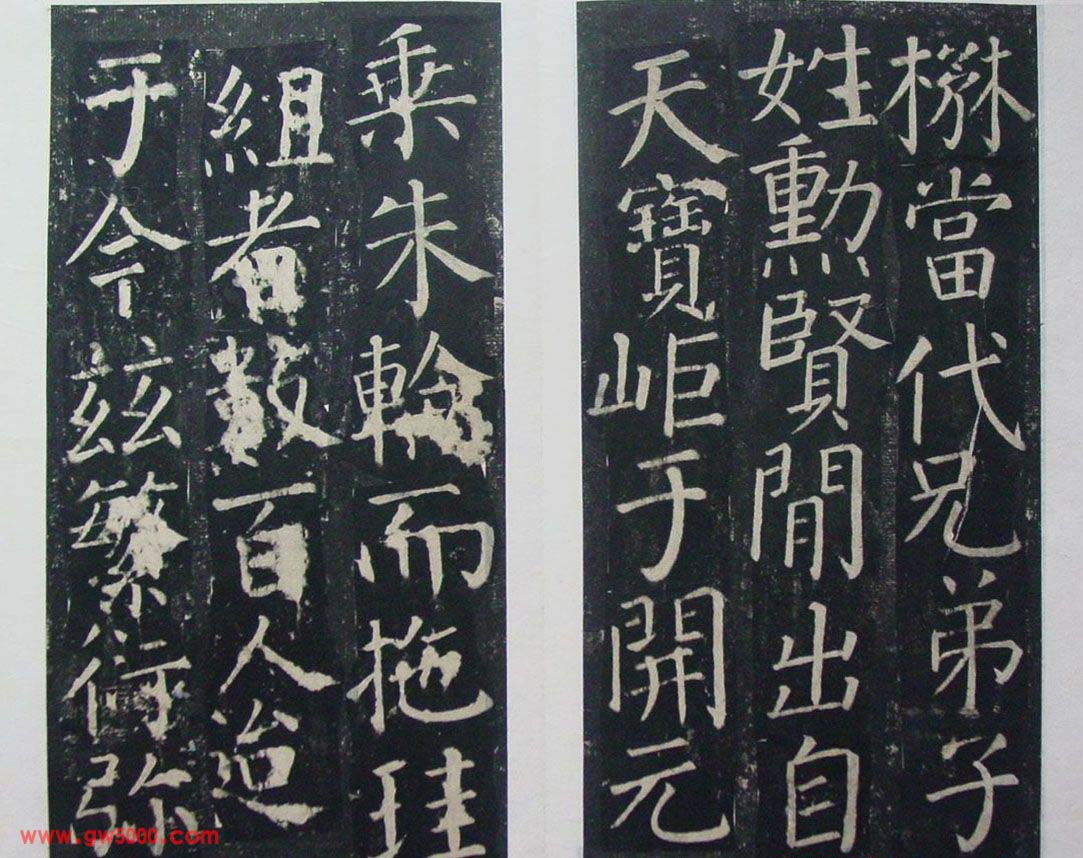 楙當代兄弟子
姓勲賢閒出自
天寶岠于開元
乗朱輪而拖珪
組者數百人迨
于今兹繁衍弥
www.gw3000.com